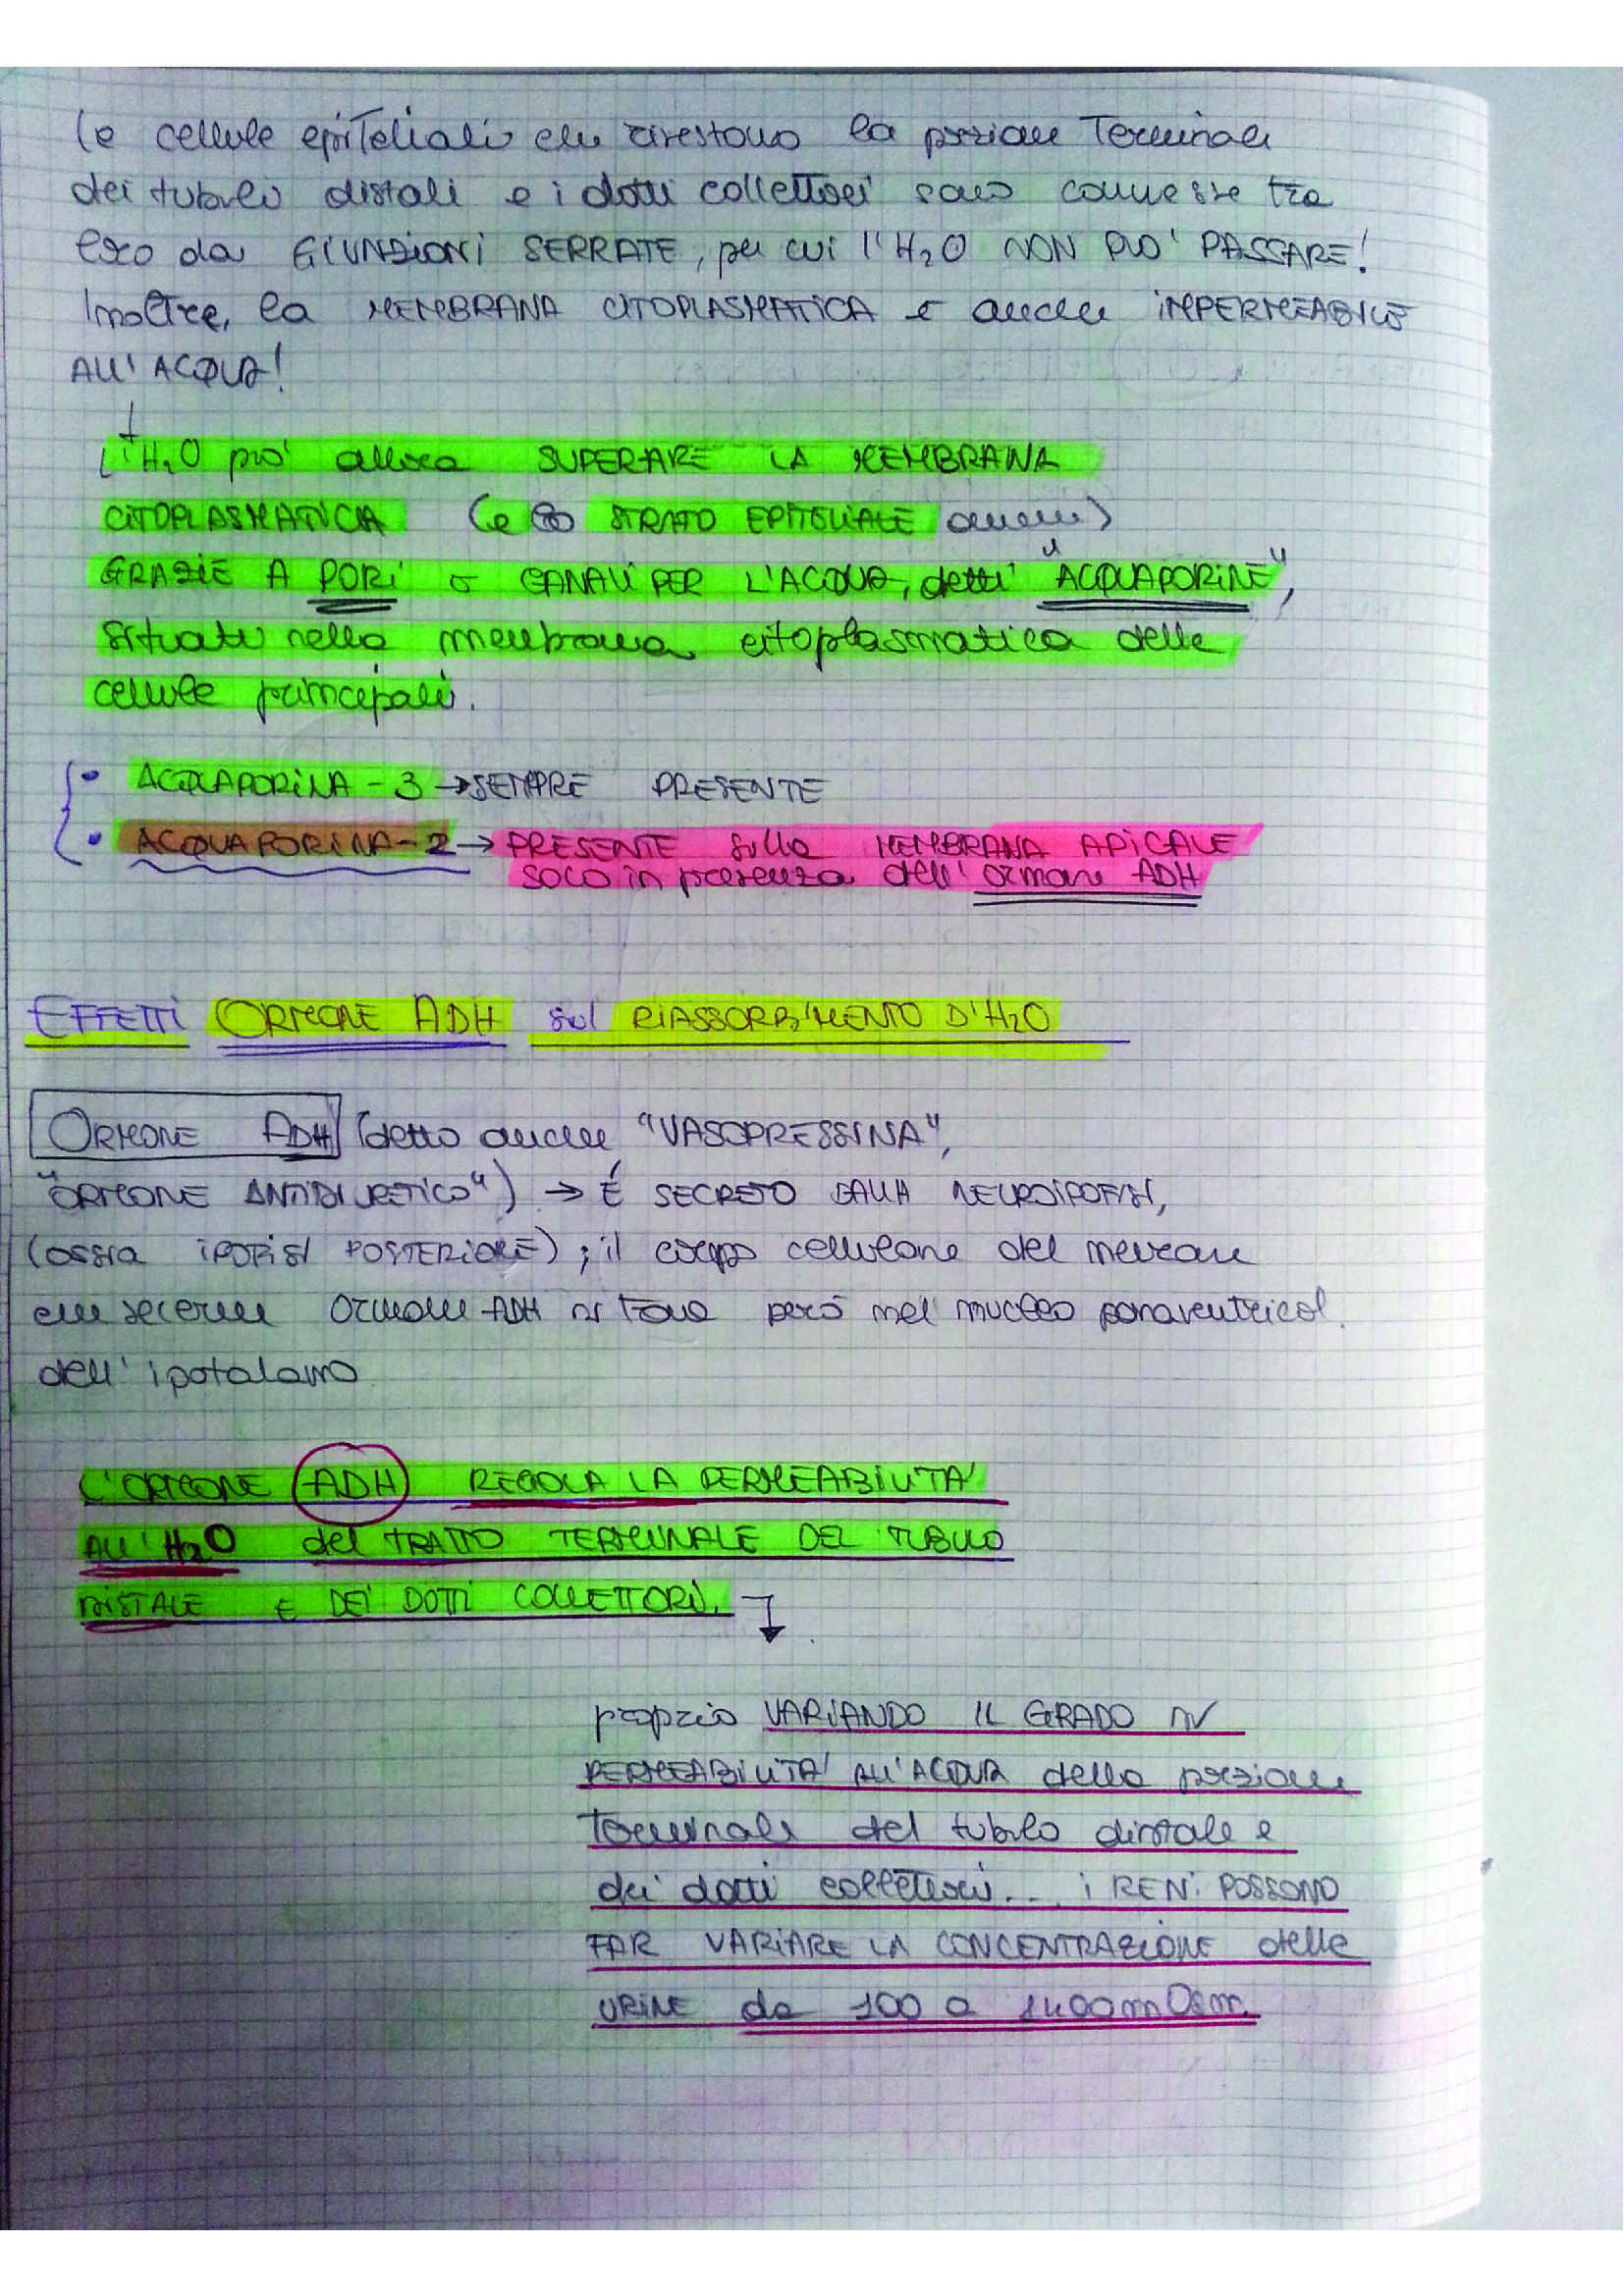 Le cellule epiteliali che rivestono la porzione terminale
dei tubuli distali e i dotti collettori sono connesse tra
loro da GIUNZIONI SERRATE, per cui l'H₂O NON PUO' PASSARE!
Inoltre, la MEMBRANA CITOPLASMATICA è anche IMPERMEABILE
ALL'ACQUA!
L'H₂O può allora SUPERARE LA MEMBRANA
CITOPLASMATICA (e lo STRATO EPITELIALE anche)
GRAZIE A PORI o CANALI PER L'ACQUA, detti "ACQUAPORINE",
situati nella membrana citoplasmatica delle
cellule principali.
• ACQUAPORINA-3 → SEMPRE PRESENTE
• ACQUAPORINA-2 → PRESENTE sulla MEMBRANA APICALE
SOLO in presenza dell'ormone ADH
EFFETTI ORMONE ADH sul RIASSORBIMENTO D'H₂O
ORMONE ADH (detto anche "VASOPRESSINA",
"ORMONE ANTIDIURETICO") → È SECRETO DALLA NEUROIPOFISI,
(ossia IPOFISI POSTERIORE); il corpo cellulare del neurone
che secerne ormone ADH si trova però nel nucleo paraventricol.
dell'ipotalamo
L'ORMONE ADH REGOLA LA PERMEABILITA'
ALL'H₂O del TRATTO TERMINALE DEL TUBULO
DISTALE E DEI DOTTI COLLETTORI.
proprio VARIANDO IL GRADO DI
PERMEABILITA' ALL'ACQUA della porzione
terminale del tubulo distale e
dei dotti collettori... i RENI POSSONO
FAR VARIARE LA CONCENTRAZIONE delle
URINE da 100 a 1400 mOsm.